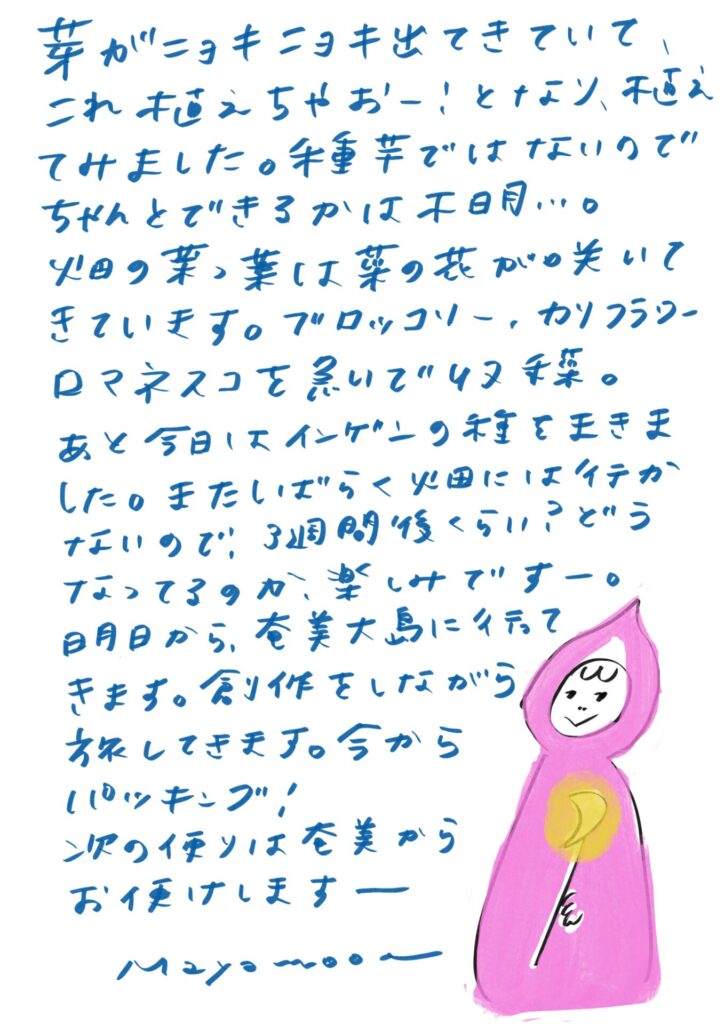 芽がニョキニョキ出てきていて、
これ植えちゃおー！となり、植え
てみました。種芋ではないので
ちゃんとできるかは不明…。
畑の葉っ葉は菜の花が咲いて
きています。ブロッコリー、カリフラワー
ロマネスコを急いで収穫。
あと今日はインゲンの種をまきま
した。またしばらく畑には行けか
ないので、3週間後くらい？どう
なってるのか、楽しみですー。
明日から、奄美大島に行って
きます。創作をしながら
旅してきます。今から
パッキング！
次の便りは奄美から
お便けします ー
Mayamoon